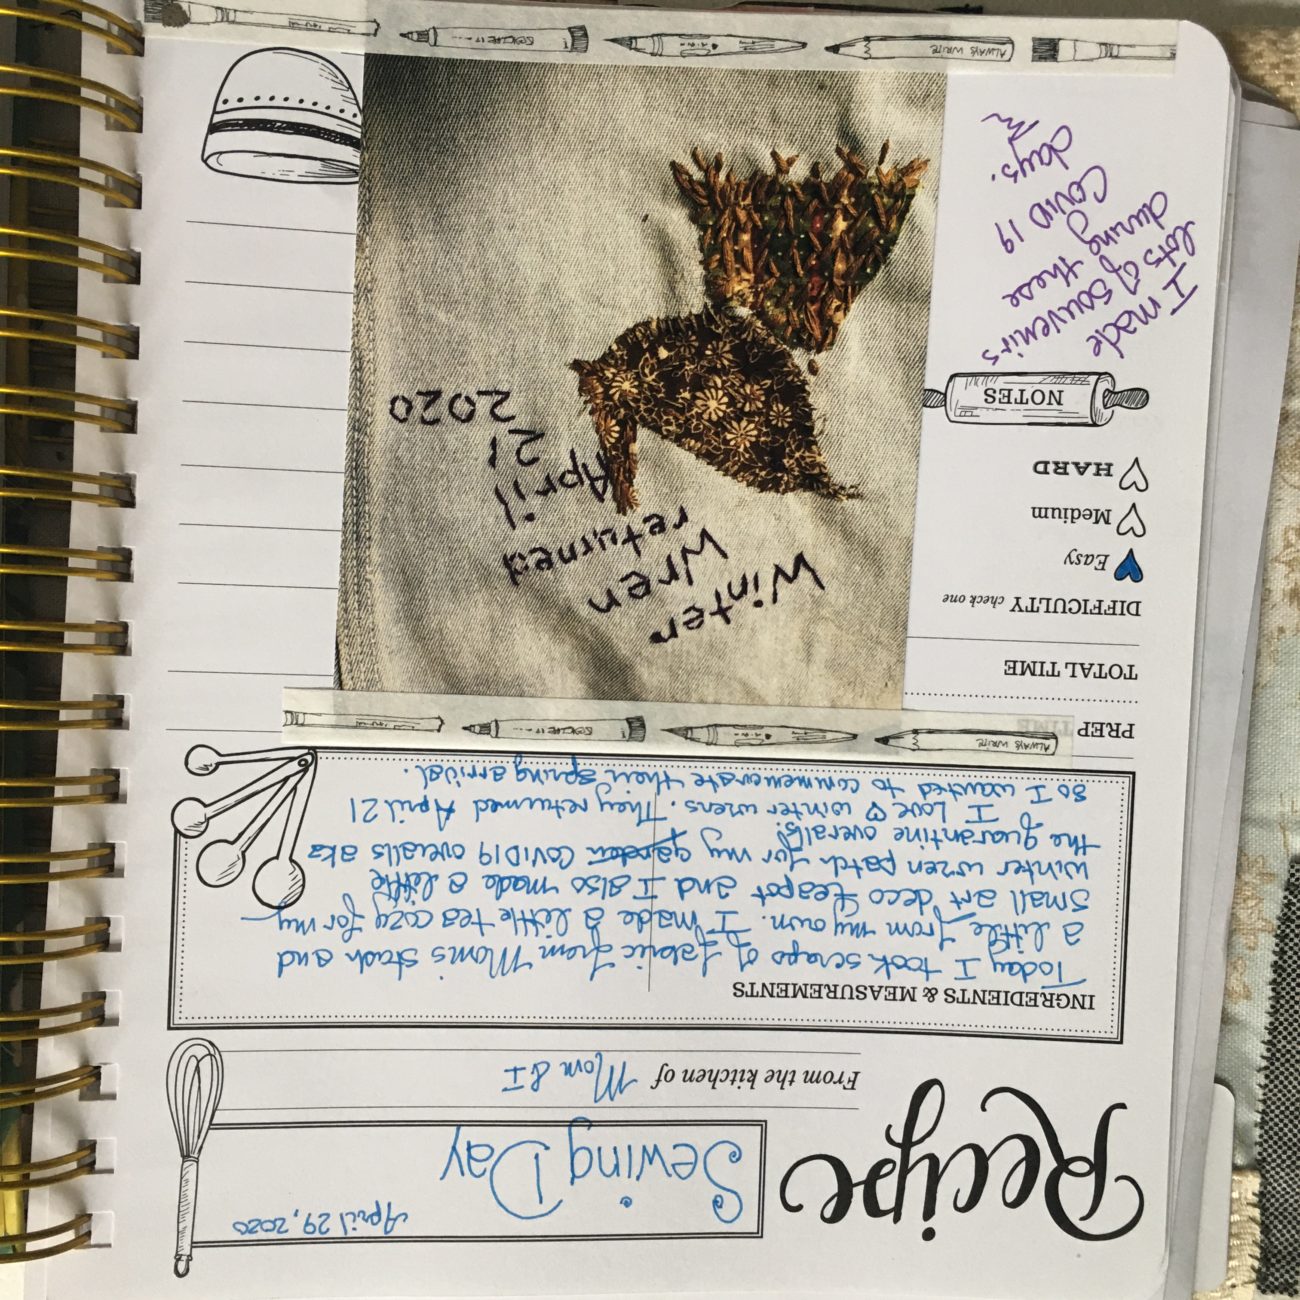 Recipe
April 29, 2020
Sewing Day
From the kitchen of Mom & I
INGREDIENTS & MEASUREMENTS
Today I took scraps of fabric from Mom's stash and
a little from my own. I made a little tea cozy for my
small art deco teapot and I also made a little
winter wren patch for my garden COVID19 overalls aka
the quarantine overalls!
I Love ♡ winter wrens. They returned April 21
so I wanted to commemorate their spring arrival.
PREP TIME
TOTAL TIME
DIFFICULTY check one
Easy
Medium
HARD
NOTES
I made
lots of souvenirs
during these
COVID 19
days.
Winter
Wren
returned
April
21
2020
ALWAYS WRITE
ALWAYS WRITE